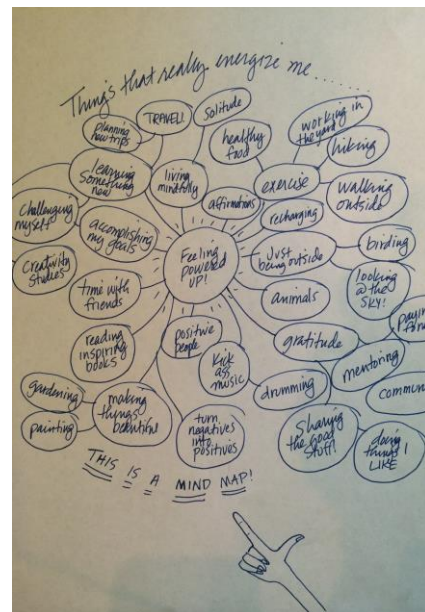 Things that really energize me......
planning
new trips
TRAVEL!
Solitude
healthy
food
working in
the yard
hiking
learning
something
new
living
mindfully
affirmations
exercise
walking
outside
challenging
myself
accomplishing
my goals
recharging
Feeling
powered
UP!
Just
being outside
birding
Creativity
Studies
time with
friends
animals
looking
@ the
SKY!
reading
inspiring
books
positive
people
Kick
ass
music
gratitude
mentoring
gardening
painting
making
things
beautiful
turn
negatives
into
positives
drumming
Sharing
the Good
Stuff!
doing
things I
LIKE
THIS IS A MIND MAP!